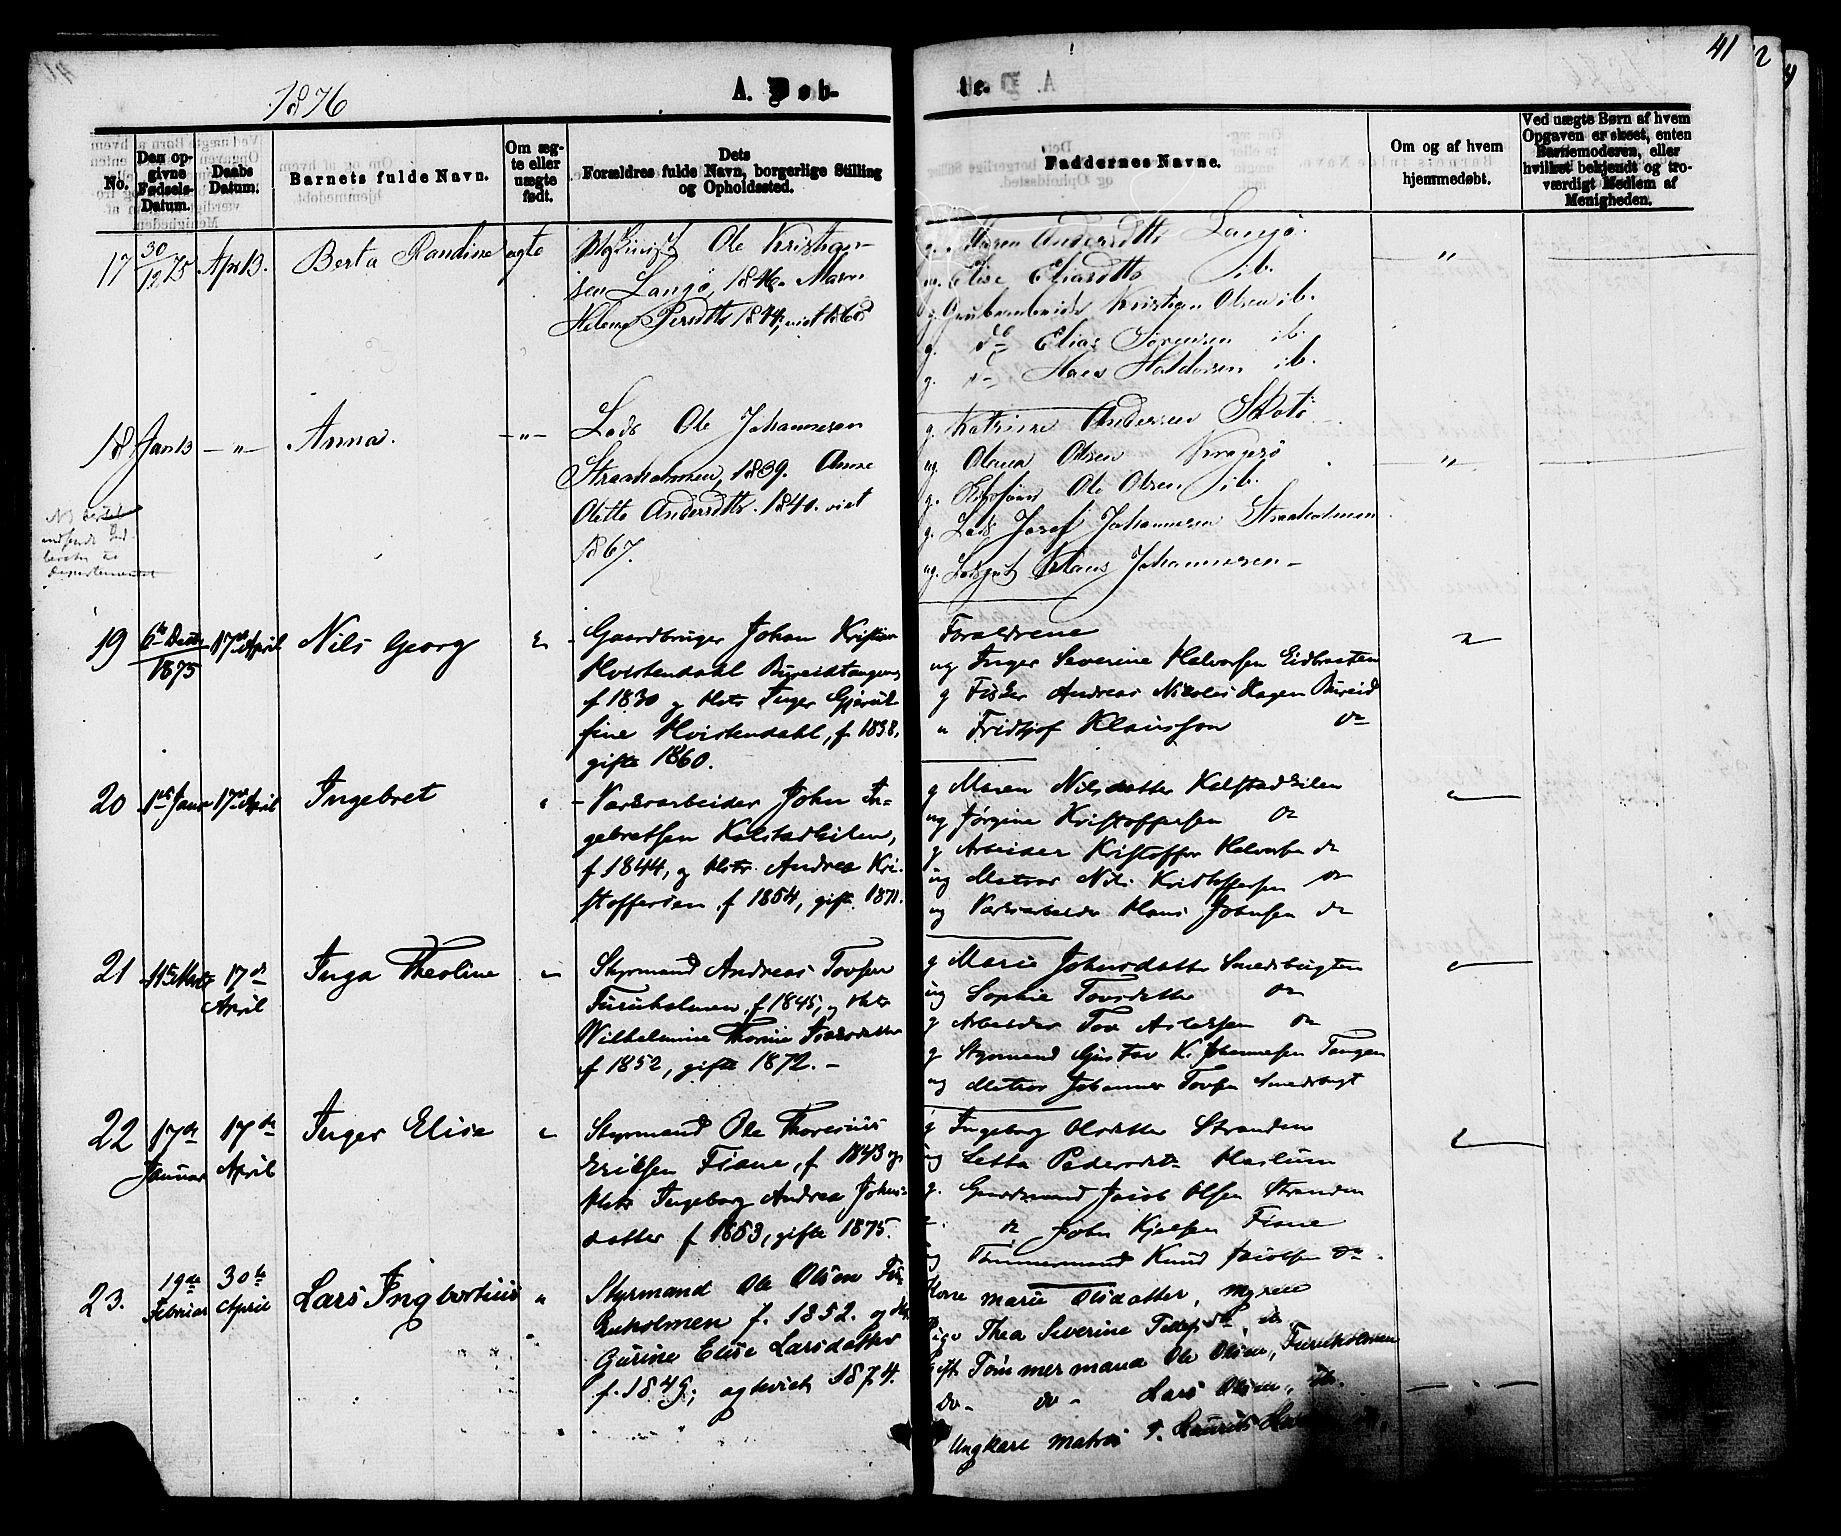 41
1876
A. Døb-
te.
No.
Den op-
givne
Fødsels-
Datum.
Daabs
Datum.
Barnets fulde Navn.
Om æg-
te eller
uægte
født.
Dets
Forældres fulde Navn, borgerlige Stilling
og Opholdssted.
Faddernes Navne.
Om og af hvem
hjemmedøbt.
Ved uægte Børn af hvem
Opgaven er skeet, enten
Barnemoderen, eller
hvilket bekjendt og tro-
værdigt Medlem af
Menigheden.
17
30
12 75
Apr 13.
Berta Randine
ægte
Ole Kristian-
sen Langø, 1846. Maren
Helene Persdtr 1844, viet 1868
g. Maren Andersdtr Langø.
ug. Elise Eliasdtr ib.
g. Grubearbeider Kristian Olsen ib.
g. do Elias Sørensen ib.
g. do Haldorsen ib.
"
18
Jan 13
- " -
Anna.
- " -
Lods Ole Johannesen
Straaholmen, 1839. Anne
Olette Andersdtr. 1840. viet
1867.
g. Katrine Andersen Skatø
ug. Olava Olsen Kragerø
g. Ole Olsen ib.
g. Lods Josef Johannesen Straaholmen
ug. Lodsgut Klaus Johannesen -
"
19
6te Decbr
1875
17de April
Nils Georg
Gaardbruger Johan Kristian
Hvistendahl Bureidtangen
f 1830 og Hstr Inger Gjerul-
fine Hvistendahl, f 1838,
gifte 1860.
Forældrene
ug Inger Severine Halvorsen Eidbraaten
g Fisker Andreas Nikolai Hagen Bureid
" Fridtjof Klausson do
20
1ste Januar
17de April
Ingebret
- Værksarbeider John In-
gebretsen Kalstadkilen,
f 1844, og Hstr. Andrea Kri-
stoffersen f 1854, gifte 187
g Maren Nilsdatter Kalstadkilen
ug Jørgine Kristoffersen do
g Arbeider Kristoffer Halvorsen do
ug Matros Nils Kristoffersen do
ug Værksarbeider Hans Johnsen do
21
17de
April
Inga Theoline
Styrmand Andreas Tovsen
Furuholmen, f 1845, og Hstr
Wilhelmine Thorine Isaksdatter
f 1852, gifte 1872. -
g Marie Johnsdatter Smedsbugten
ug Sophie Tovsdatter do
g Arbeider Tov Aslaksen do
g Styrmand Gustav K. Johannesen Tangen
ug Matros Johannes Tovsen Smedsbugt
22
17de
Januar
17de
April
Inger Elise
Styrmand Ole Thorenius
Eriksen Fiane, f 1843 og
Hstr Ingeborg Andrea Johns-
datter f 1853, gifte 1875.
g Ingeborg Olsdatter Stranden
ug Letta Pedersdtr Haslum
g. Gaardmand Jacob Olsen Stranden
do John Kjelsen Fiane
ug Tømmermand Knud Jacobsen do.
23.
19de
Februar
30te
April
Lars Ingbortius
"
Styrmand Ole Olsen Fu-
ruholmen f. 1852. og Hstr
Gurine Elise Larsdatter
f. 1849; ægteviet 1874.
Kone Marie Olsdatter, Myrene
Pige Thea Severine do
Gift Tømmermand Ole Olsen, Furuholmen
do - do - Lars Olsen, do.
Ungkarl Matros Laurits